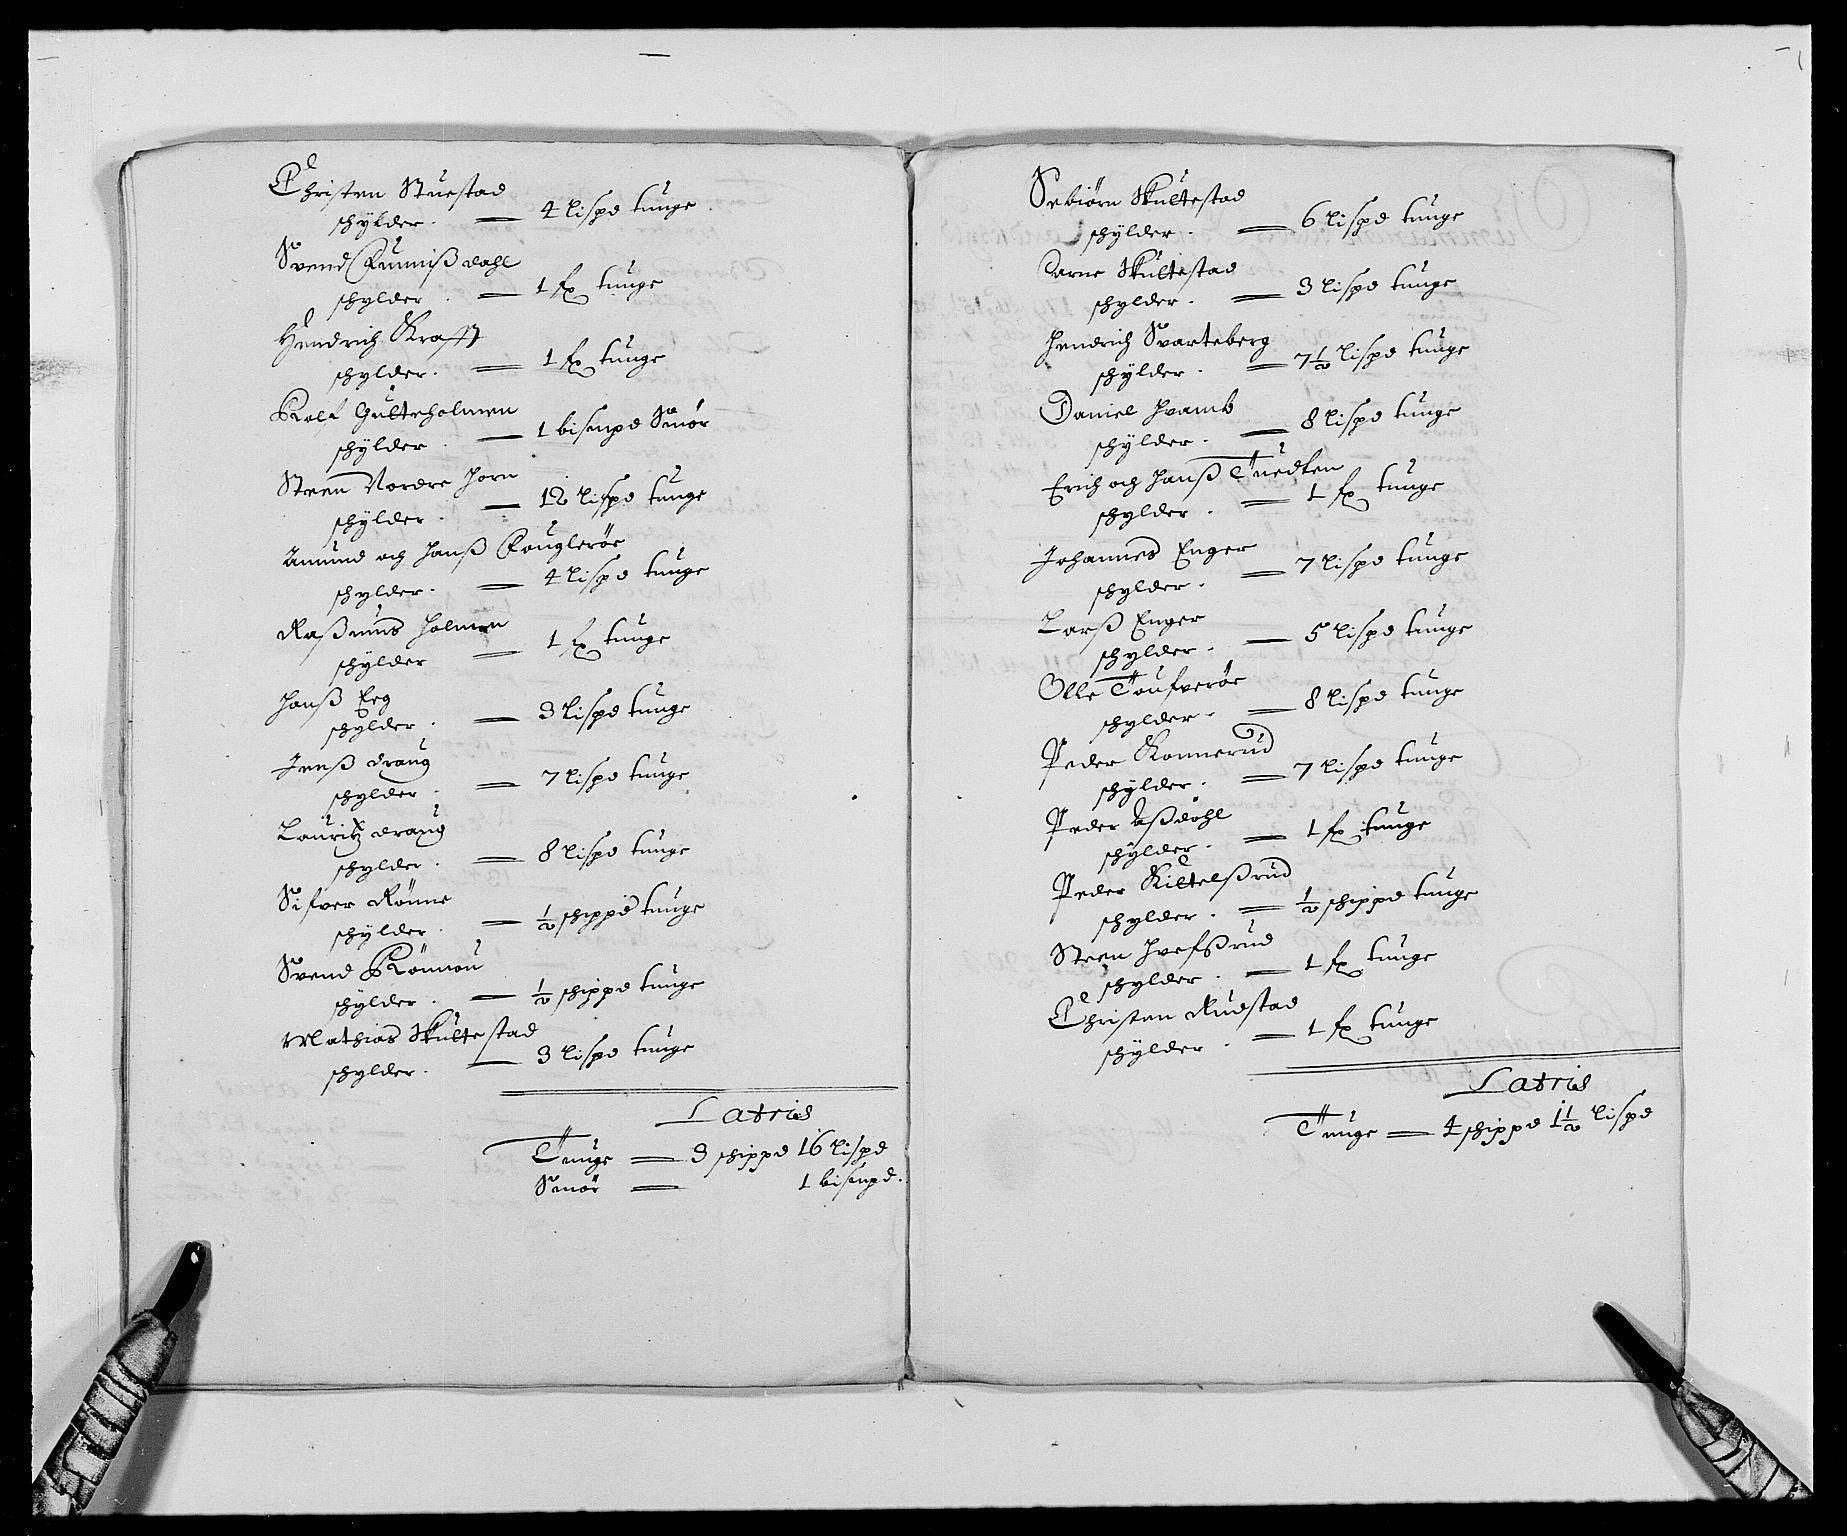 Christen Stuestad
schylder. — 4 lispd tunge.
Svend Funniß dahl
schylder. — 1 fx tunge
Hendrich Krafft
schylder. — 1 fx tunge
Rolf Gulteholmen
schylder — 1 bismpd Smör
Steen Nordre Horn
schylder. — 12 lispd tunge
Amund och Hanß Fougleröe
schylder. — 4 lispd tunge
Raßmus Holmen
schylder — 1 fx tunge
Hanß Eeg
schylder. — 3 lispd tunge
Jenß draug
schylder. — 7 lispd tunge
Lauritz draug
schylder. — 8 lispd tunge
Sifver Rönne
schylder. — 1/2 schippd tunge
Svend Rönnou
schylder. — 1/2 schippd tunge
Mathias Skultestad
schylder. — 3 lispd tunge
Latris
Tunge — 3 schippd 16 lispd
Smör — 1 bismpd.
Sebiörn Skultestad
schylder. — 6 lispd tunge
Aarne Skultestad
schylder. — 3 lispd tunge
Hendrich Svarteberg
schylder. — 7 1/2 lispd tunge
Daniel Hvamb
schylder. — 8 lispd tunge
Erich och Hanß Tuedten
schylder. — 1 fx tunge
Johannes Enger
schylder. — 7 lispd tunge
Larß Enger
schylder. — 5 lispd tunge
Olle Toufveröe
schylder. — 8 lispd tunge
Peder Konnerud
schylder. — 7 lispd tunge
Peder Aßdöhl
schylder. — 1 fx tunge
Peder Kiltelßrud
schylder. — 1/2 schippd tunge
Steen Hvefßrud
schylder. — 1 fx tunge
Christen Rudstad
schylder. — 1 fx tunge
Latris
Tunge — 4 schippd 1 1/2 lispd